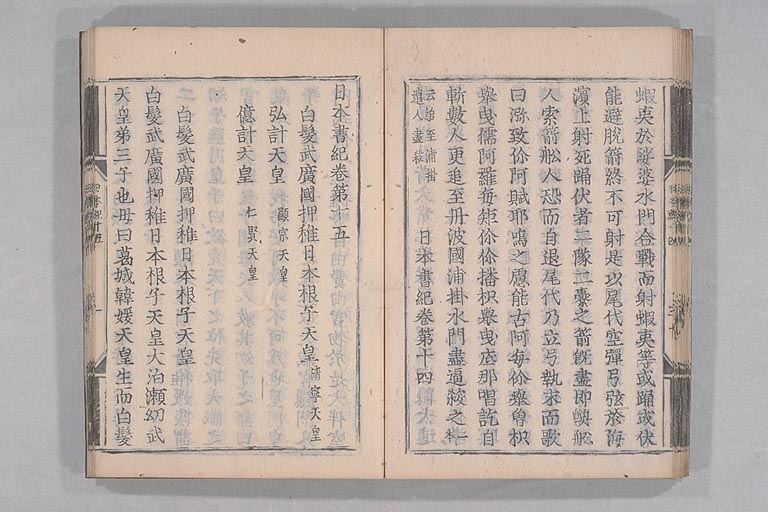 蝦夷於娑婆水門合戰而射蝦夷等或踊或伏
能避脫箭終不可射是以尾代空彈弓弦於海
濱上射死踊伏者二隊二櫜之箭旣盡即喚舩
人索箭舩人恐而自退尾代乃立弓執末而歌
曰
阿賦耶鳴之慮能古阿每
擧曳儒阿羅每
擧曳底那唱訖自
斬數人更追至丹波國浦掛水門盡逼殺之一本
云追至浦掛
遣人盡殺
日本書紀卷第十四
日本書紀卷第十五
白髮武廣國押稚日本根子天皇 淸寧天皇
弘計天皇 顯宗天皇
億計天皇 仁賢天皇
白髮武廣國押稚日本根子天皇
白髮武廣國押稚日本根子天皇大泊瀨幼武
天皇第三子也母曰葛城韓媛天皇生而白髮